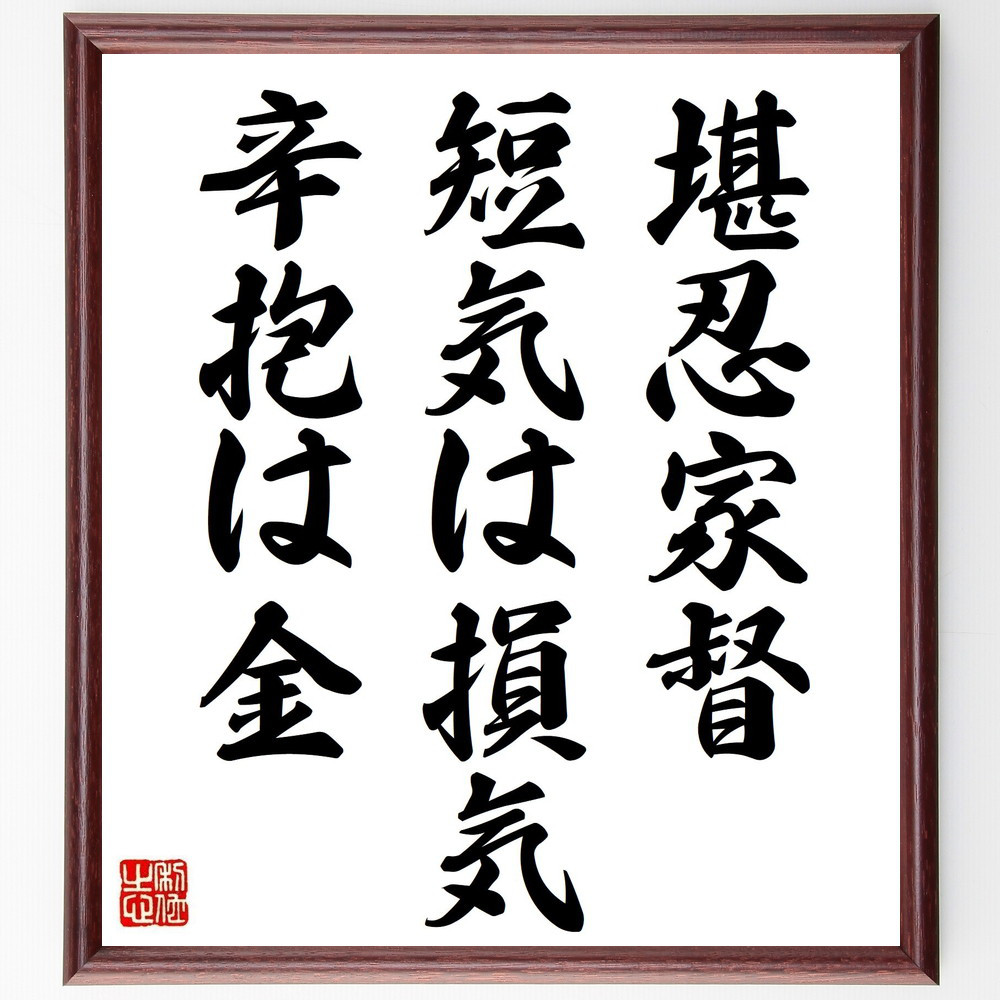 堪忍家督
短気は損気
辛抱は金